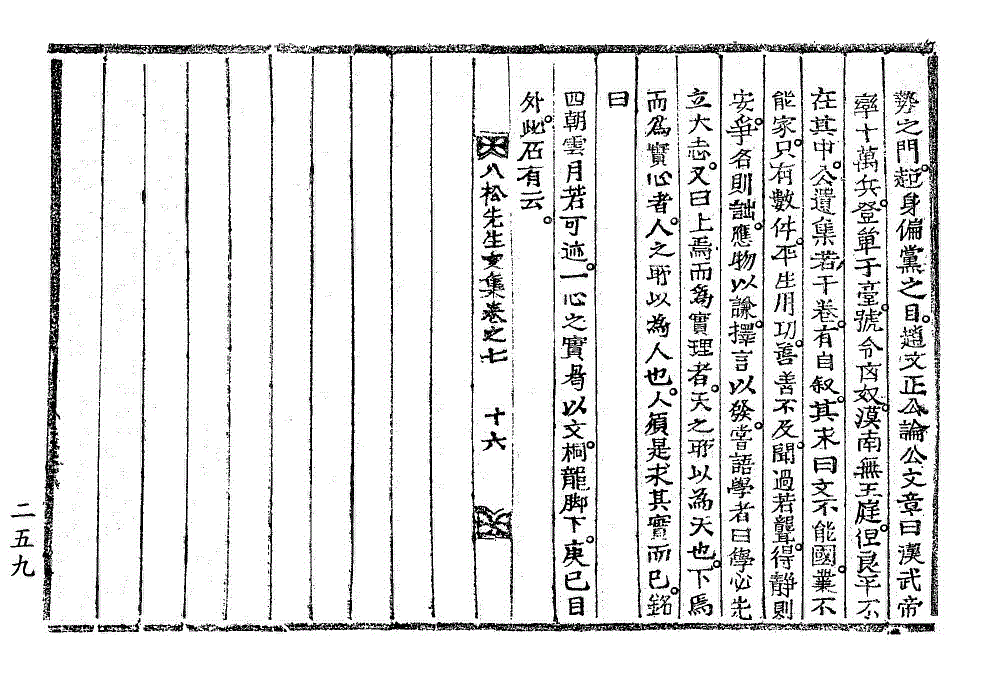 勢之門。起身偏黨之目。趙文正公論公文章曰漢武帝
率十萬兵。登單于臺。號令匈奴。漠南無王庭。但良平不
在其中。公遺集若干卷。有自叙。其末曰文不能國。業不
能家。只有數件。平生用功。善善不及。聞過若聾。得靜則
安。爭名則詘。應物以諭。擇言以發。嘗語學者曰學必先
立大志。又曰上焉而爲實理者。天之所以為天也。下焉
而爲實心者。人之所以為人也。人須是求其實而已。銘
曰
四朝雲月若可迹。一心之實曷以文。桐龍脚下。庚巳目
外。此石有云。
八松先生文集卷之七 十六
二五九